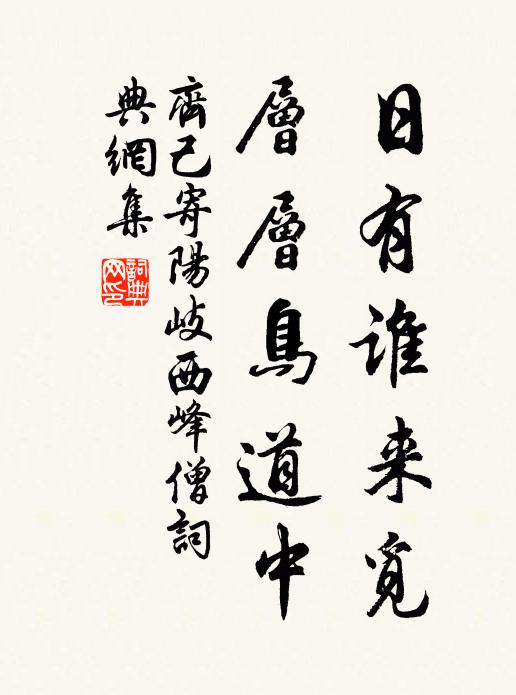 日有誰来覓
層層鳥道中
齊己寄陽岐西峰僧詞
典網集
詞典
网印